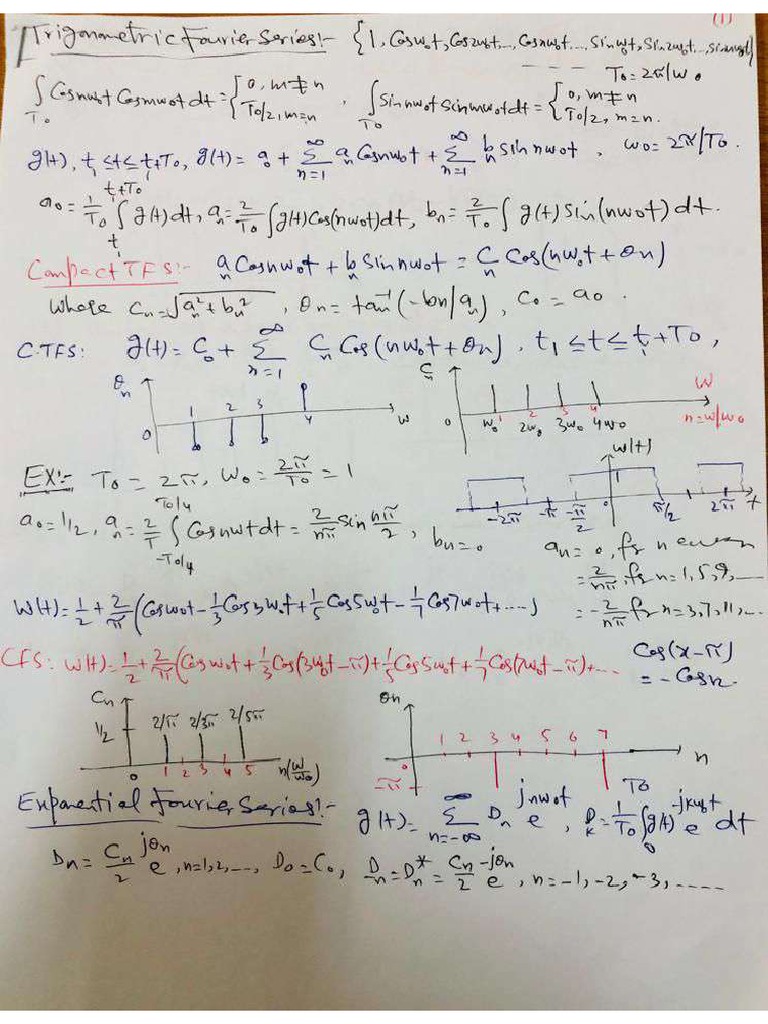 (1)
Trigonometric Fourier Series:- {1, Cosω₀t, Cos2ω₀t,..., Cosnω₀t..., Sinω₀t, Sin2ω₀t,..., sinnω₀t}
---- T₀=2π/ω₀
∫_T₀ Cosnω₀t Cosmω₀t dt = {0, m≠n; T₀/2, m=n , ∫_T₀ Sinnω₀t sinmω₀t dt = {0, m≠n; T₀/2, m=n.
g(t), t₁≤t≤t₁+T₀, g(t) = a₀ + Σ_{n=1}^{∞} aₙ Cosnω₀t + Σ_{n=1}^{∞} bₙ sinnω₀t , ω₀=2π/T₀.
a₀ = 1/T₀ ∫_{t₁}^{t₁+T₀} g(t)dt, aₙ = 2/T₀ ∫g(t)Cos(nω₀t)dt, bₙ = 2/T₀ ∫ g(t) Sin(nω₀t) dt.
Compact TFS:- aₙ Cosnω₀t + bₙ Sinnω₀t = Cₙ Cos(nω₀t+θn)
Where Cₙ=√(aₙ²+bₙ²) , θn = tan⁻¹(-bn/aₙ), C₀ = a₀ .
C.TFS: g(t) = C₀ + Σ_{n=1}^{∞} Cₙ Cos(nω₀t+θn) , t₁≤t≤t₁+T₀,
θn 0 1 2 3 4 ω
Cₙ 0 ω₀ 1 2ω₀ 2 3ω₀ 3 4ω₀ 4 ω n=ω/ω₀
EX:- T₀ = 2π, ω₀ = 2π/T₀ = 1
w(t) 1 -2π -π -π/2 0 π/2 2π t
a₀=1/2, aₙ = 2/T ∫_{-T₀/4}^{T₀/4} Cosnωt dt = 2/nπ sin nπ/2 , bₙ=0
an = 0, fr n even
= 2/nπ, fr n=1,5,9,...
= -2/nπ fr n=3,7,11,...
W(t) = 1/2 + 2/π (Cosω₀t - 1/3 Cos3ω₀t + 1/5 Cos5ω₀t - 1/7 Cos7ω₀t+....)
CFS: W(t) = 1/2 + 2/π (Cosω₀t + 1/3 Cos(3ω₀t-π) + 1/5 Cos5ω₀t + 1/7 Cos(7ω₀t-π)+...
Cos(x-π)
= -Cosx.
Cn 1/2 2/π 2/3π 2/5π 0 1 2 3 4 5 n(ω/ω₀)
θn 1 2 3 4 5 6 7 n 0 -π
Exponential Fourier Series:- g(t) = Σ_{n=-∞}^{∞} Dn e^{jnω₀t} , D_k = 1/T₀ ∫_0^{T₀} g(t) e^{-jkω₀t} dt
Dn = Cn/2 e^{jθn}, n=1,2,..., D₀=C₀, D₋n = Dn* = Cn/2 e^{-jθn}, n=-1,-2,-3,.....